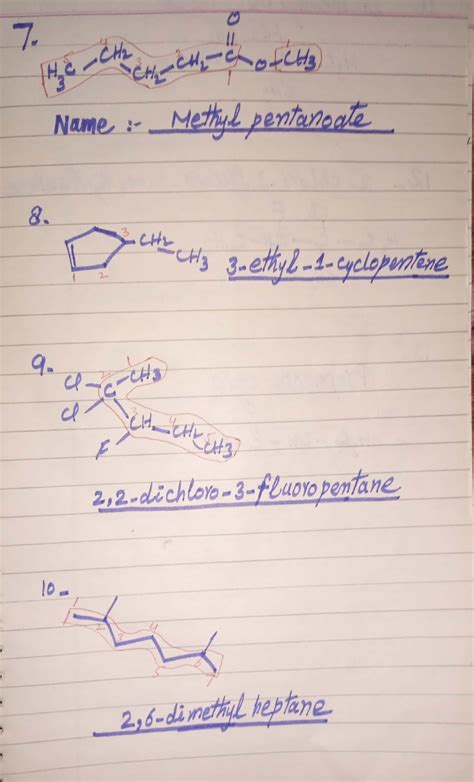 7.
O
H3C CH2 CH2 CH2 C O CH3
Name :- Methyl pentanoate
8.
CH2 CH3
3-ethyl-1-cyclopentene
9.
Cl C CH3
Cl
CH CH2 CH3
F
2,2-dichloro-3-fluoropentane
10-
2,6-dimethyl heptane